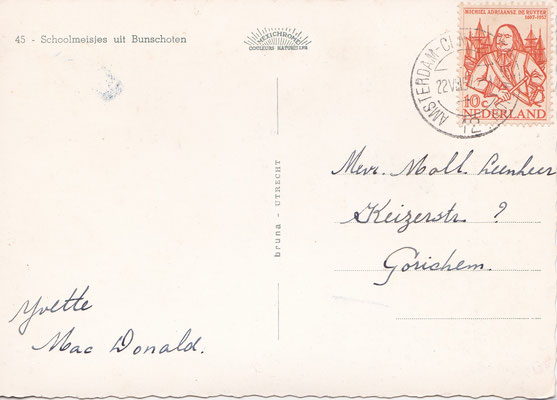 45 - Schoolmeisjes uit Bunschoten
MEXICHROME
COULEURS NATURELLES
MICHIEL ADRIAANSZ DE RUYTER
1607-1957
10c
NEDERLAND
AMSTERDAM-C
22 VIII
12
bruna - UTRECHT
Mevr. Moll. Leenheer
Keizerstr. ?
Gorichem.
Yvette
Mac Donald.